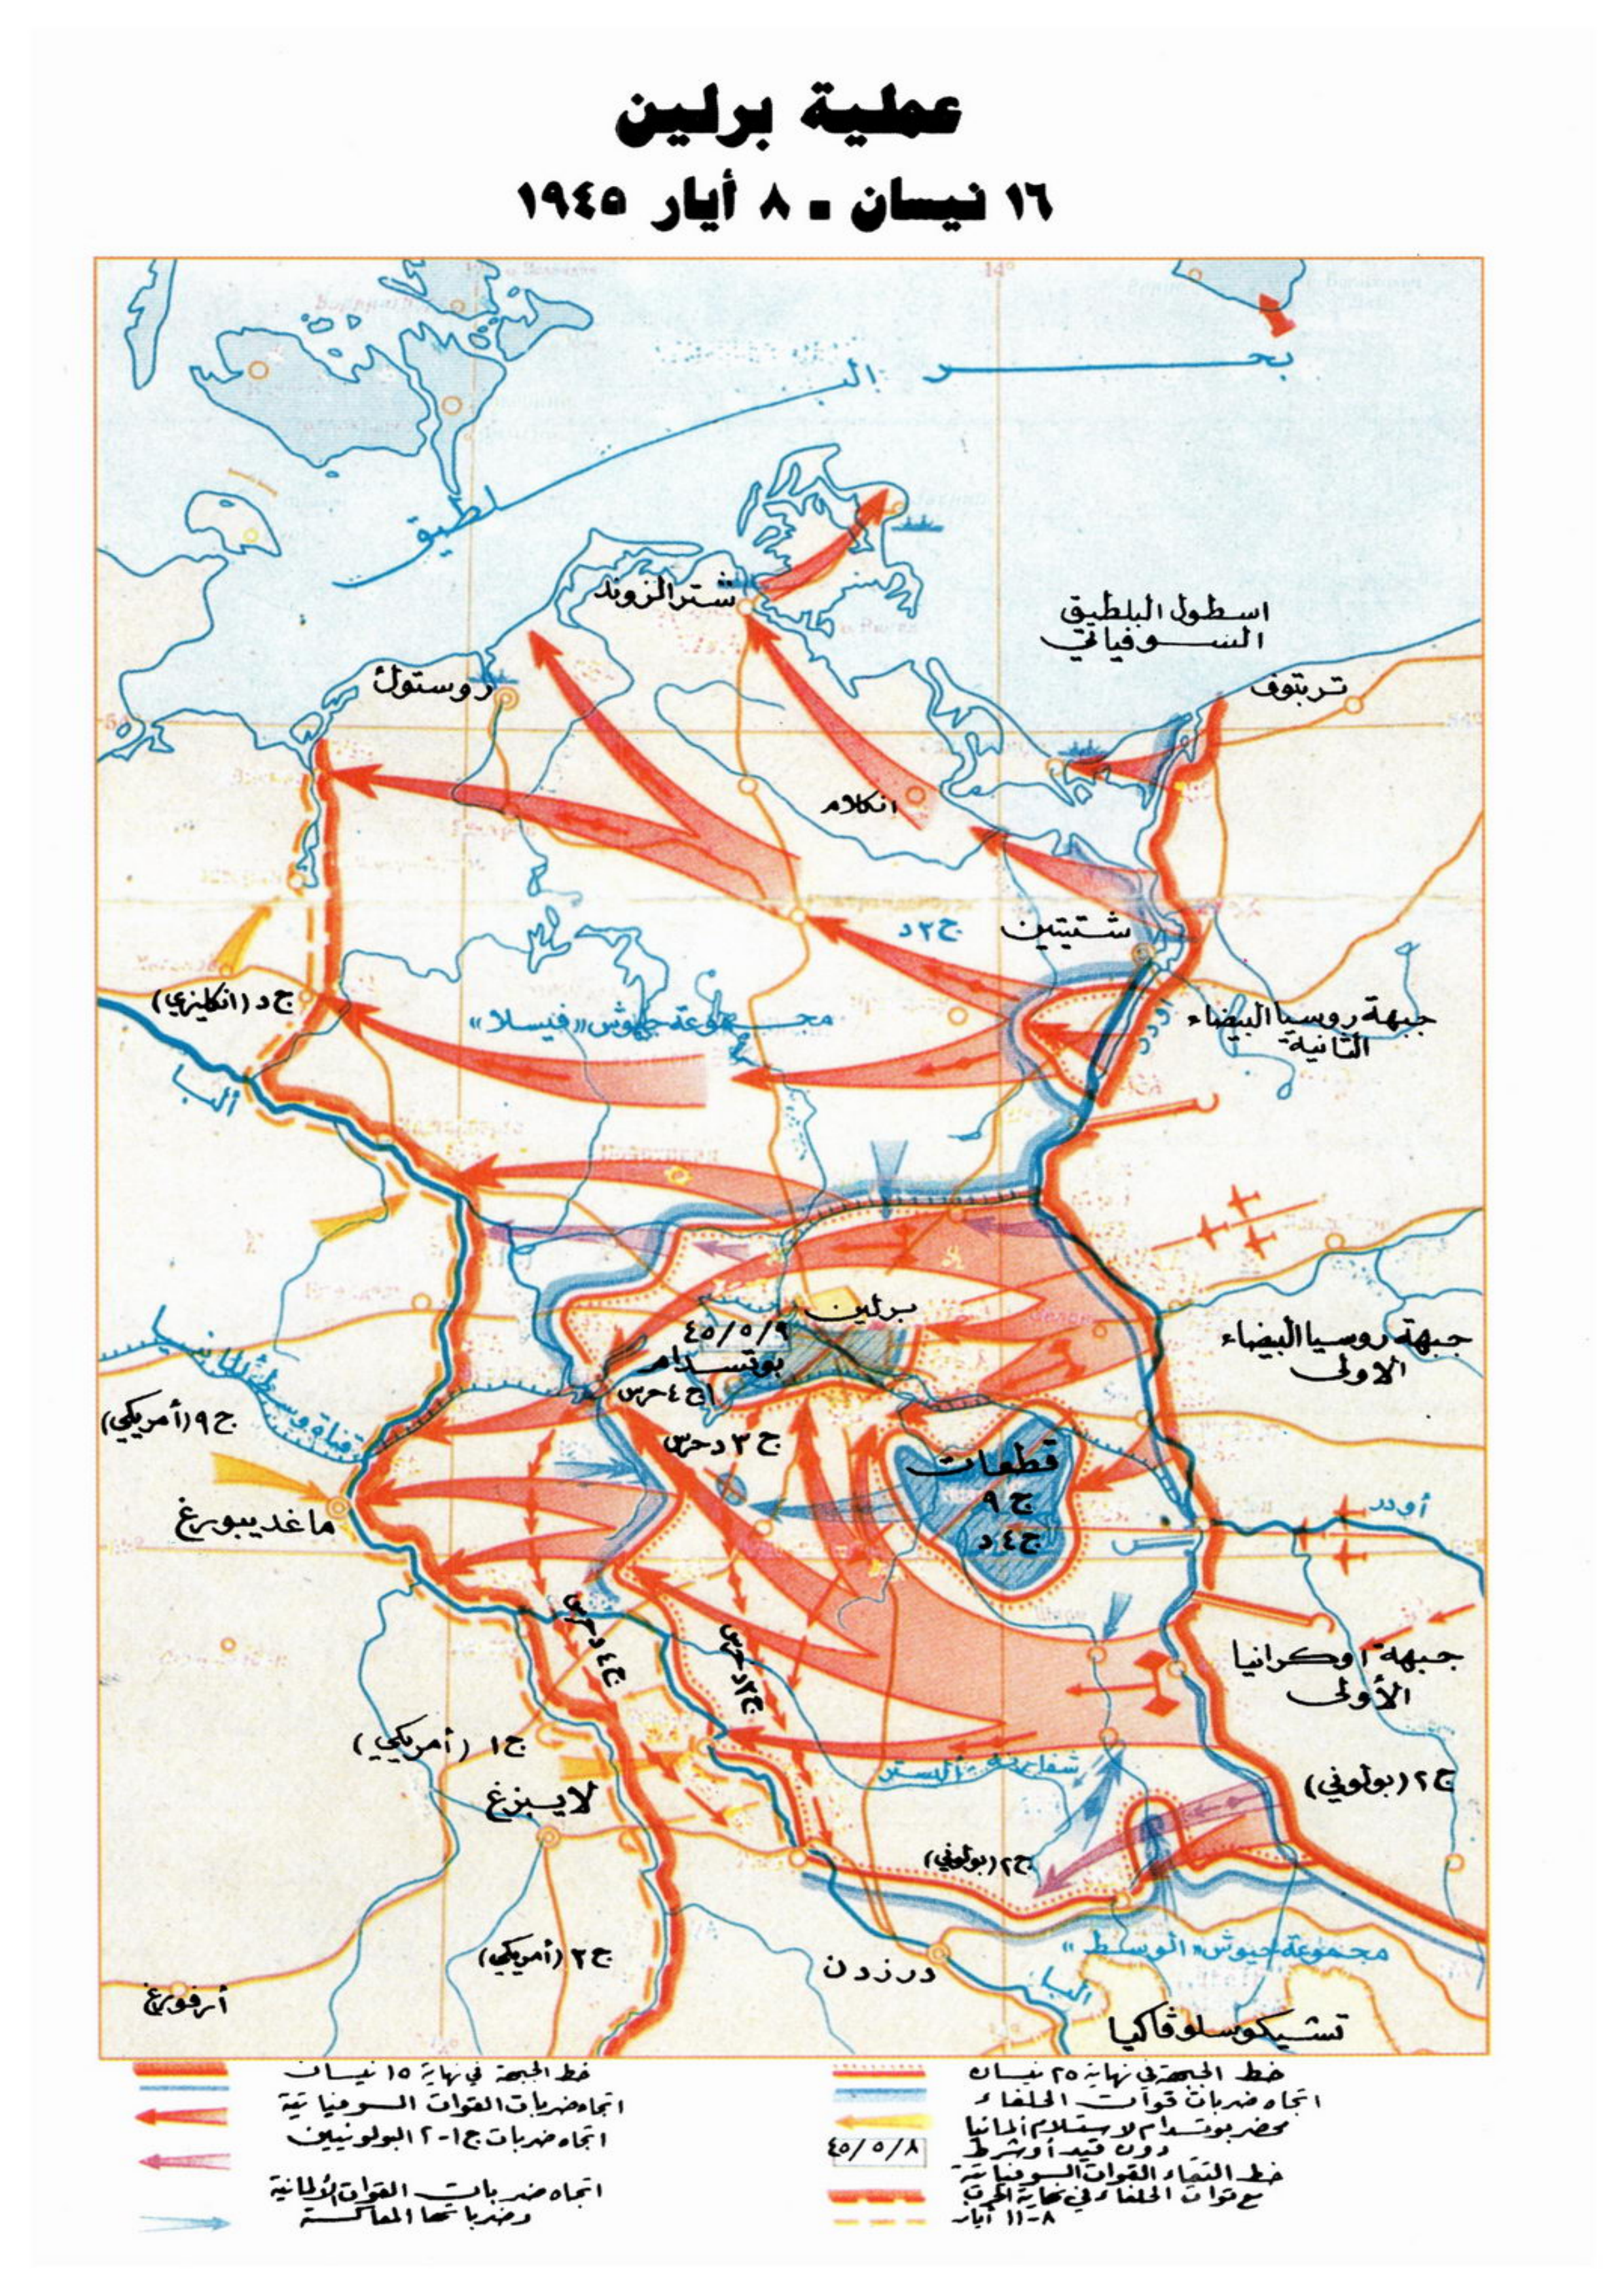 عملية برلين
١٦ نيسان - ٨ أيار ١٩٤٥
بحر البلطيق
شترالزوند
اسطول البلطيق
السوفياتي
روستوك
تربتوف
انكلام
شتيتين
ج٣د
ج د (انكليزي)
مجموعة جيوش «فيسلا»
أودر
جبهة روسيا البيضاء
الثانية
ألبا
برلين
٤٥/٥/٩
بوتسدام
جبهة روسيا البيضاء
الاولى
ج٤حرس
ج٩(أمريكي)
قناة وسط المانيا
ج٣دحرس
قطعات
ج٩
ج٤د
ماغديبورغ
أودر
ج٤دحرس
ج٣دحرس
جبهة اوكرانيا
الأولى
ج١ (أمريكي)
ج٢(بولوني)
لايبزغ
ج٢(بولوني)
ج٣(أمريكي)
درزدن
مجموعة جيوش «الوسط»
البا
أرفورغ
تشيكوسلوڤاكيا
خط الجبهة في نهاية ١٥ نيسان
اتجاه ضربات القوات السوفياتية
اتجاه ضربات ج١-٢ البولونيين
اتجاه ضربات القوات الألمانية
وضرباتها المعاكسة
خط الجبهة في نهاية ٢٥ نيسان
اتجاه ضربات قوات الحلفاء
محضر بوتسدام لاستلام ألمانيا
دون قيد أو شرط
٤٥/٥/٨
خط التقاء القوات السوفياتية
مع قوات الحلفاء في نهاية الحرب
٨-١١ أيار